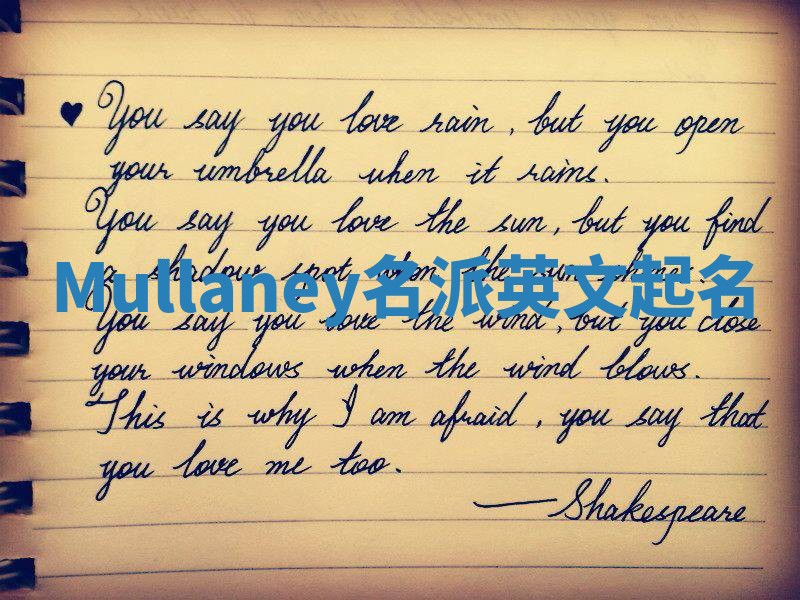 ♥ You say you love rain, but you open
your umbrella when it rains.
You say you love the sun, but you find
a shadow spot when the sun shines.
Mullaney名派英文起名
You say you love the wind, but you close
your windows when the wind blows.
This is why I am afraid, you say that
you love me too.
—Shakespeare